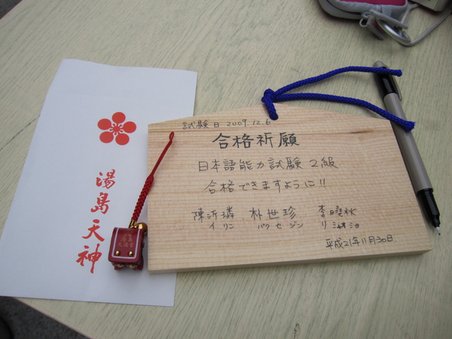 湯島天神
試験日 2009.12.6
合格祈願
日本語能力試験 2級
合格できますように!!
陳沂璘 朴世珍 李曉秋
イリン パクセジン リシャオシュウ
平成21年11月30日